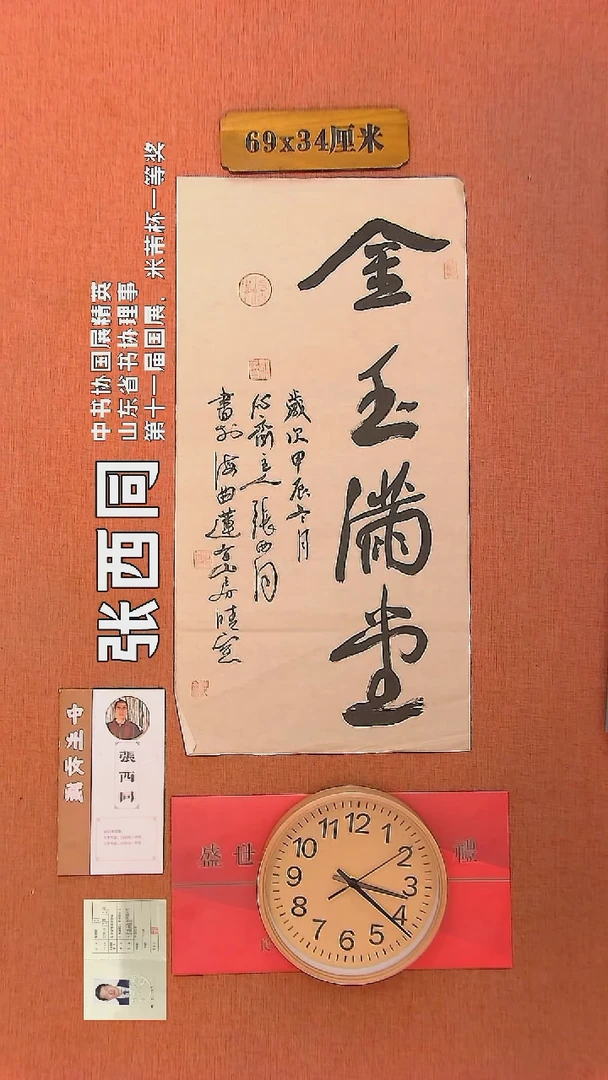 69x34厘米
金玉满堂
歲次甲辰冬月
心齋主人張西同
書於海曲蓮山房晴窓
张西同
中书协国展精英
山东省书协理事
第十一届国展、米芾杯一等奖
張西同
盛世
禮
12
1
2
3
4
5
6
7
8
9
10
11